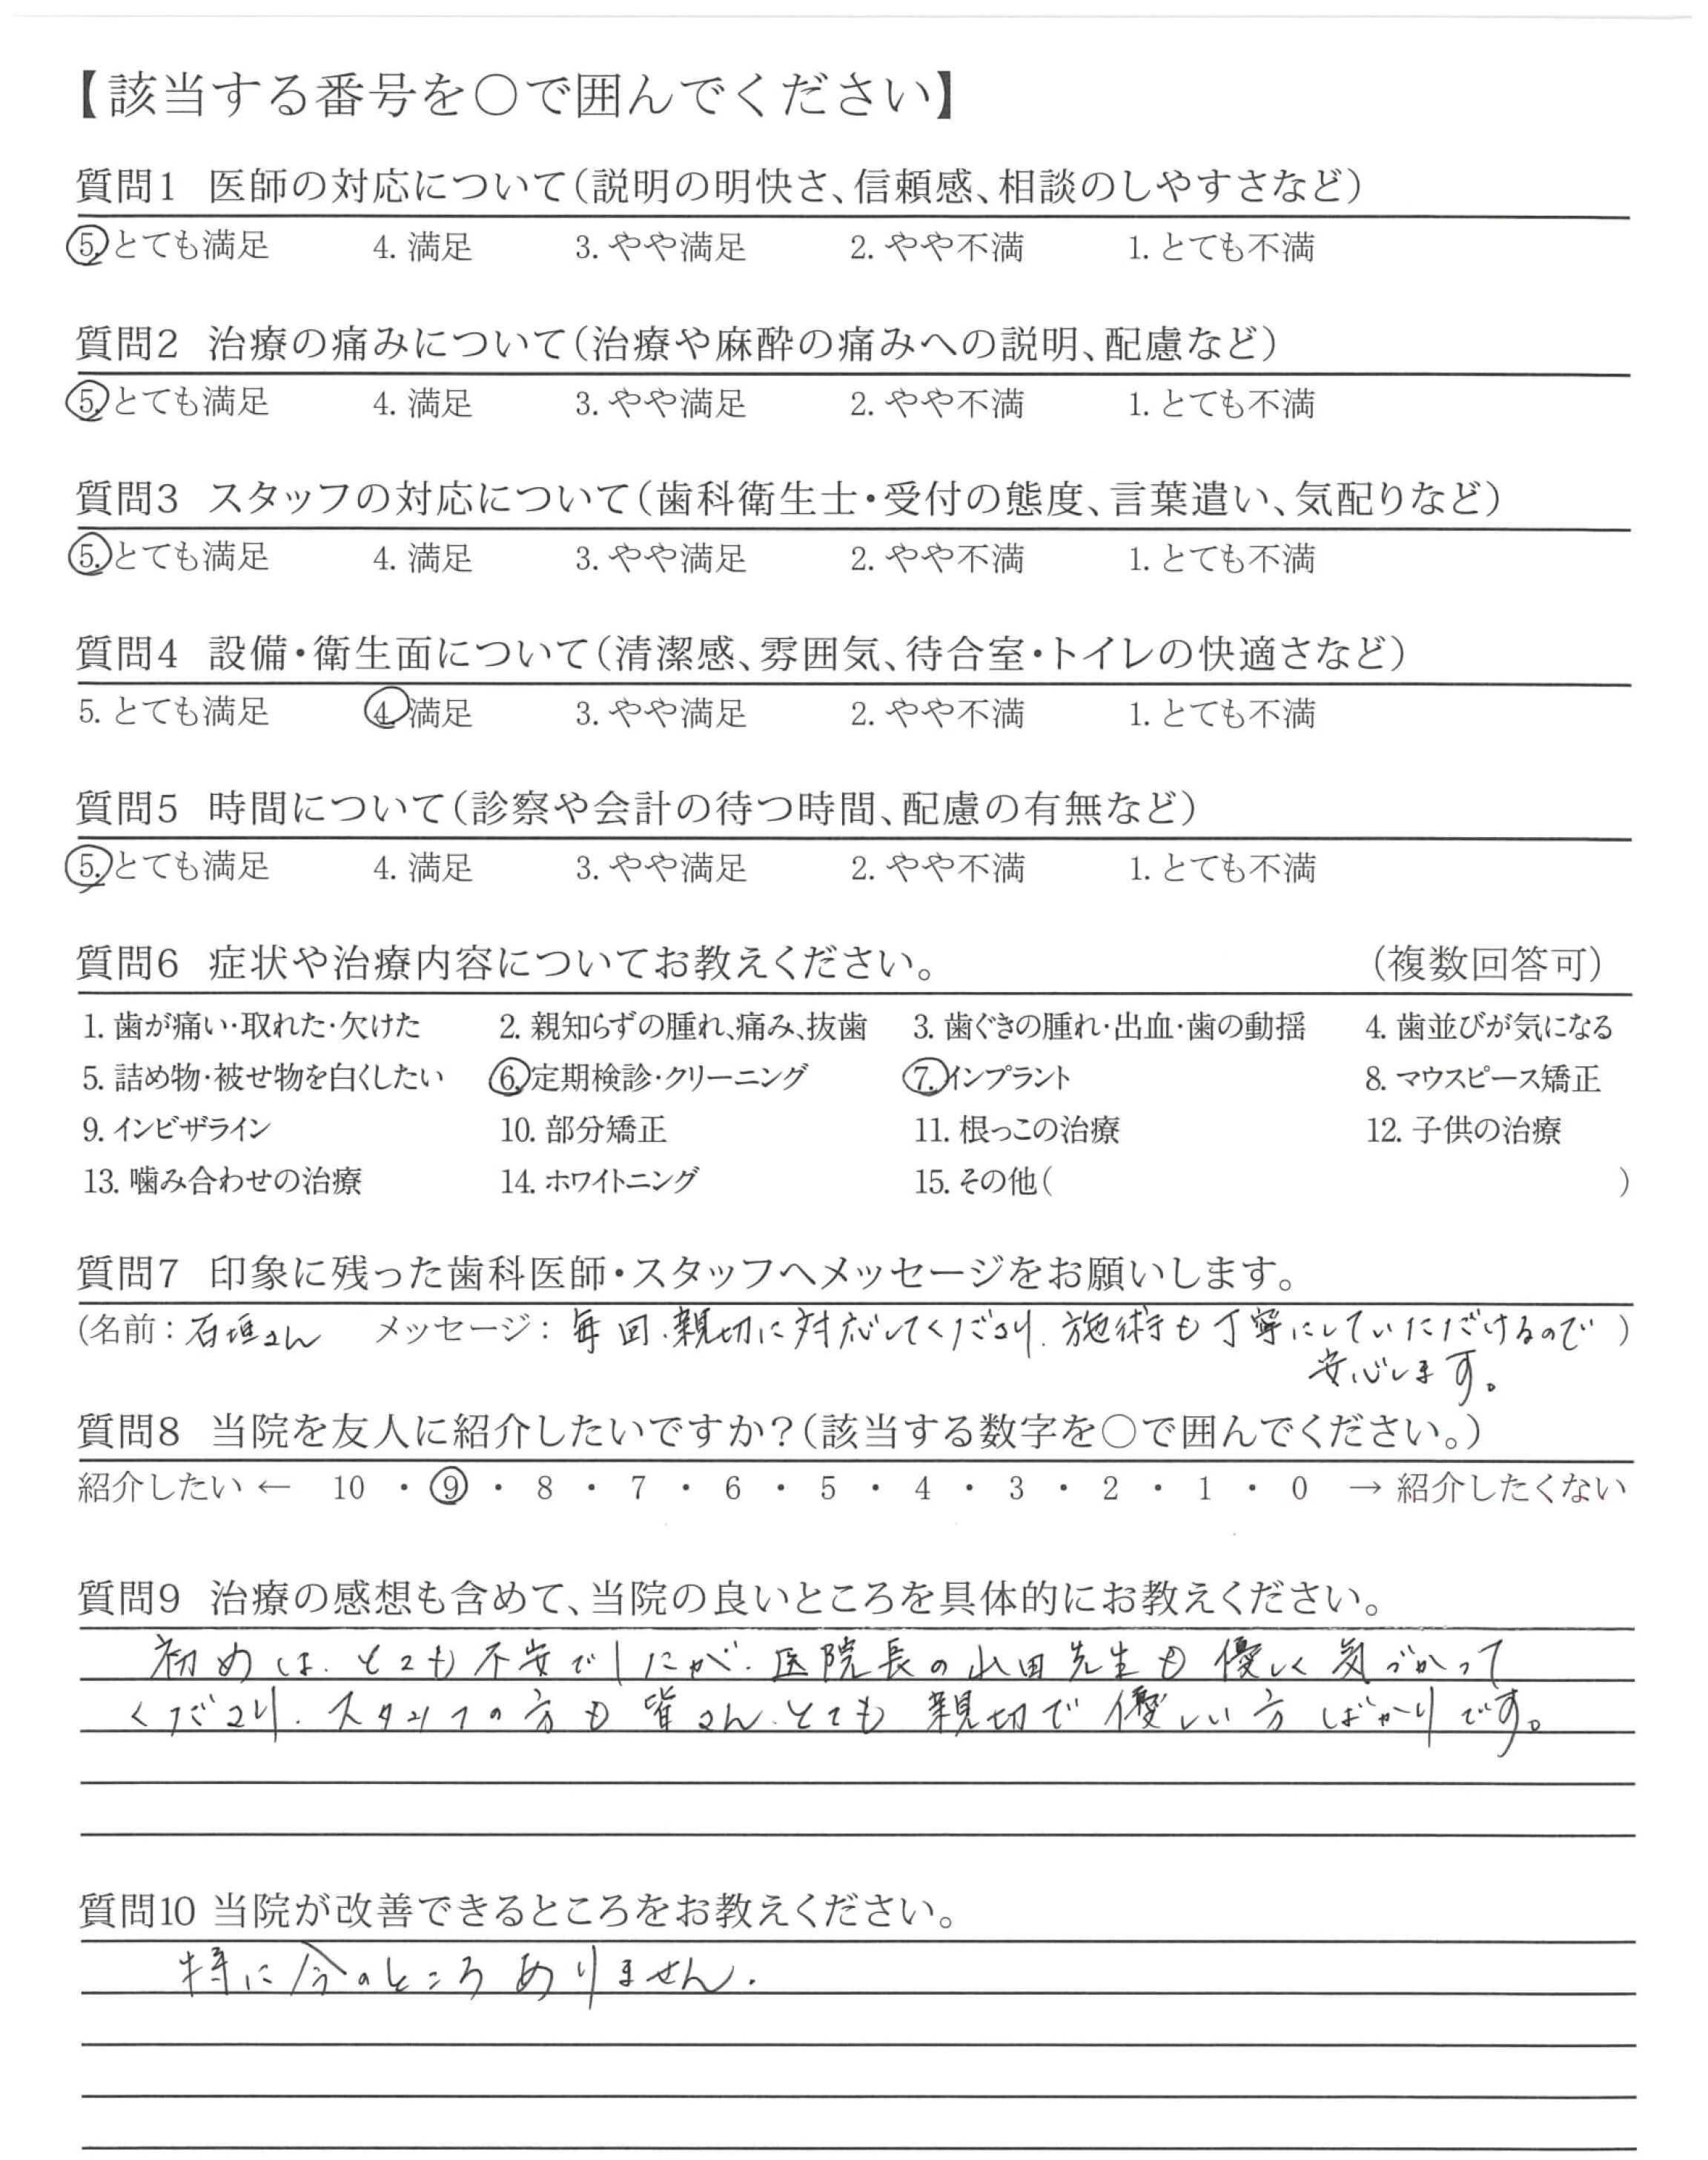 【該当する番号を○で囲んでください】
質問1 医師の対応について（説明の明快さ、信頼感、相談のしやすさなど）
5. とても満足 4. 満足 3. やや満足 2. やや不満 1. とても不満
質問2 治療の痛みについて（治療や麻酔の痛みへの説明、配慮など）
5. とても満足 4. 満足 3. やや満足 2. やや不満 1. とても不満
質問3 スタッフの対応について（歯科衛生士・受付の態度、言葉遣い、気配りなど）
5. とても満足 4. 満足 3. やや満足 2. やや不満 1. とても不満
質問4 設備・衛生面について（清潔感、雰囲気、待合室・トイレの快適さなど）
5. とても満足 4. 満足 3. やや満足 2. やや不満 1. とても不満
質問5 時間について（診察や会計の待つ時間、配慮の有無など）
5. とても満足 4. 満足 3. やや満足 2. やや不満 1. とても不満
質問6 症状や治療内容についてお教えください。 （複数回答可）
1. 歯が痛い・取れた・欠けた 2. 親知らずの腫れ、痛み、抜歯 3. 歯ぐきの腫れ・出血・歯の動揺 4. 歯並びが気になる
5. 詰め物・被せ物を白くしたい 6. 定期検診・クリーニング 7. インプラント 8. マウスピース矯正
9. インビザライン 10. 部分矯正 11. 根っこの治療 12. 子供の治療
13. 噛み合わせの治療 14. ホワイトニング 15. その他（ ）
質問7 印象に残った歯科医師・スタッフへメッセージをお願いします。
（名前：石垣さん メッセージ：毎回、親切に対応してくださり、施術も丁寧にしていただけるので ）
安心します。
質問8 当院を友人に紹介したいですか？（該当する数字を○で囲んでください。）
紹介したい ← 10 ・ 9 ・ 8 ・ 7 ・ 6 ・ 5 ・ 4 ・ 3 ・ 2 ・ 1 ・ 0 → 紹介したくない
質問9 治療の感想も含めて、当院の良いところを具体的にお教えください。
初めは、とても不安でしたが、医院長の山田先生も優しく気づかって
くださり、スタッフの方も皆さん、とても親切で優しい方ばかりです。
質問10 当院が改善できるところをお教えください。
特に今のところありません。